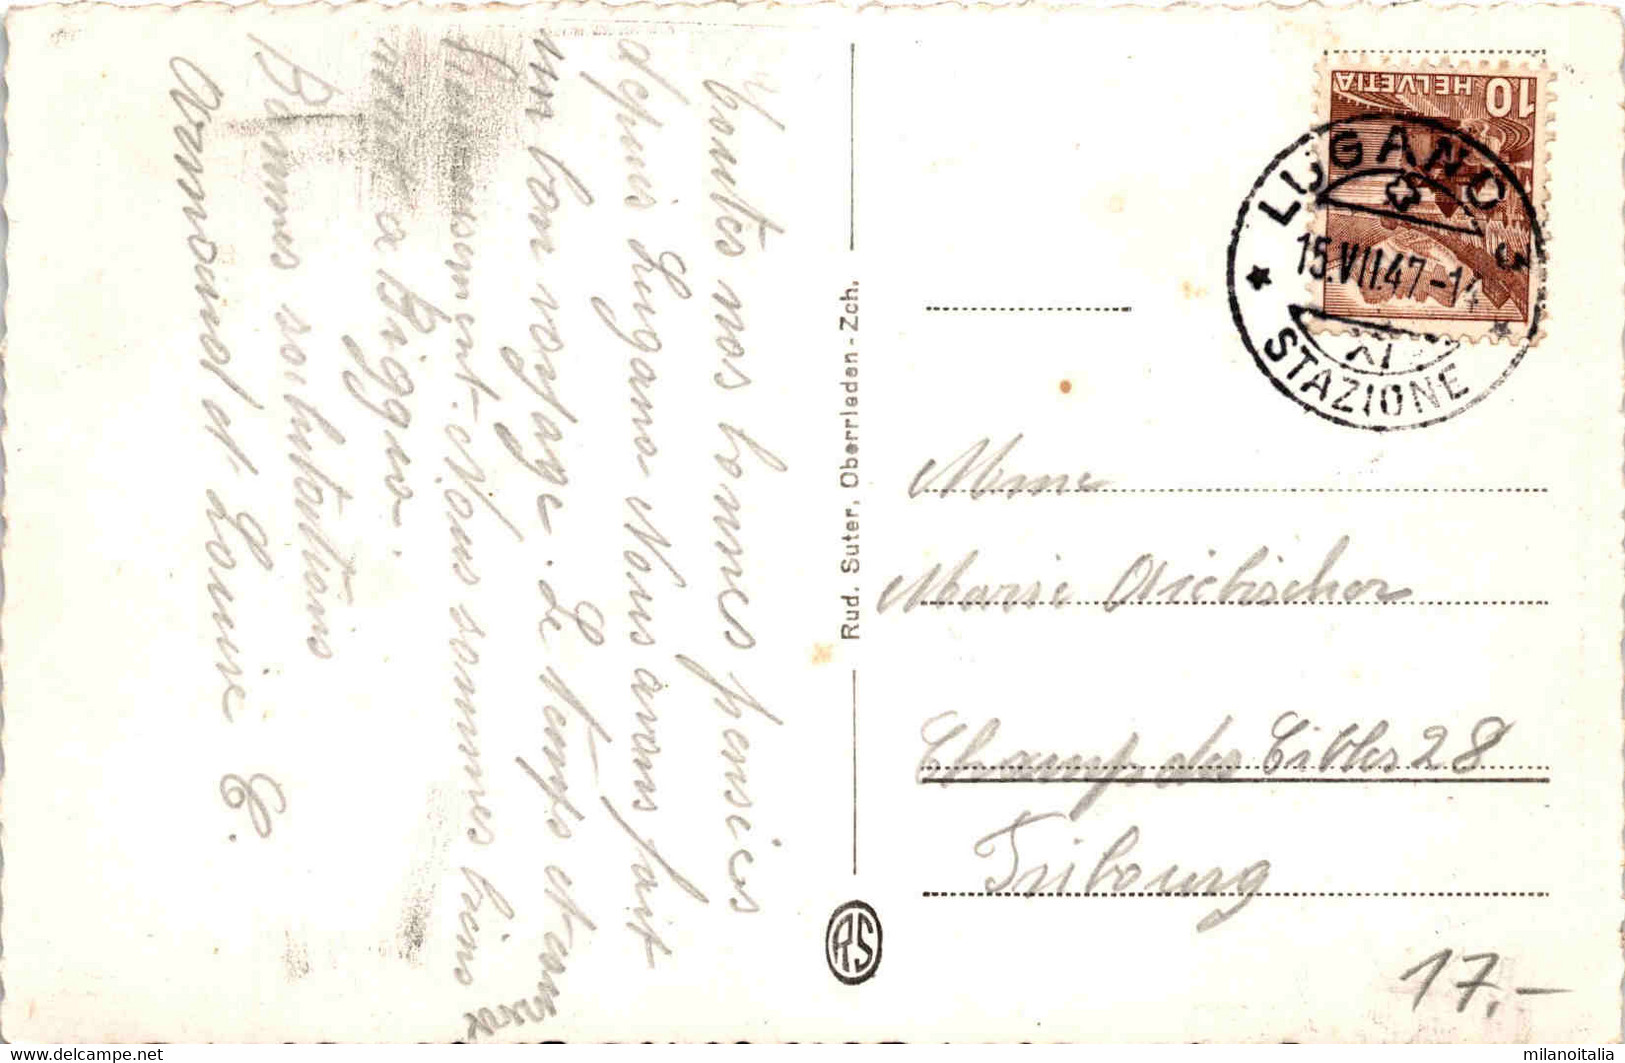 Toutes nos bonnes pensées
depuis Lugano Nous avons fait
un bon voyage. Le temps est
Nous sommes bien
a Biggio.
Bonnes salutations
Armand et Louise E.
Rud. Suter, Oberrieden-Zch.
RS
HELVETIA
10
LUGANO 3
15.VII.47-14
XI
STAZIONE
Mme
Marie Aebischer
Champ des Cibles 28
Fribourg
17.-
www.delcampe.net
milanoitalia